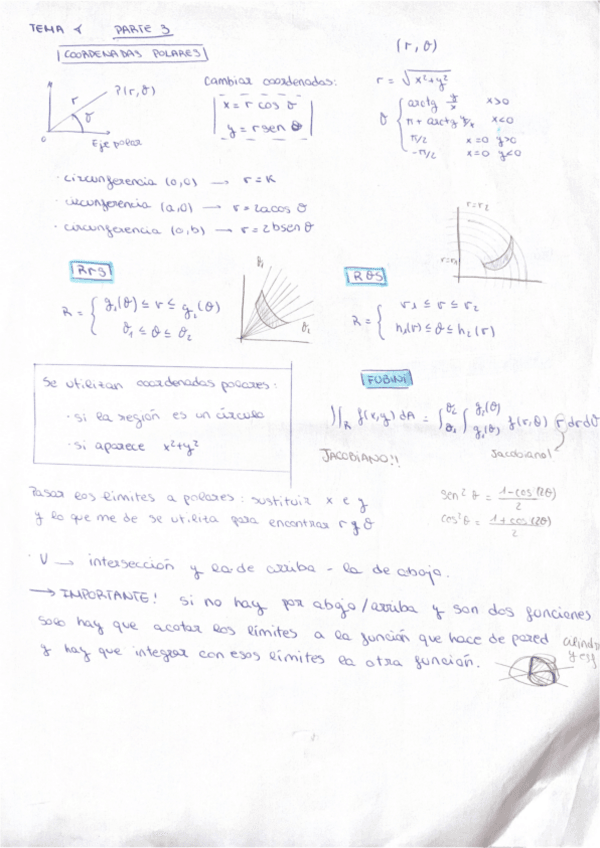 TEMA 4 PARTE 3
COORDENADAS POLARES
(r, θ)
r P(r,θ)
θ
0 Eje polar
Cambiar coordenadas:
x = r cos θ
y = r sen θ
r = √x²+y²
θ { arctg y/x x>0
π + arctg y/x x<0
π/2 x=0 y>0
-π/2 x=0 y<0
· circunferencia (0,0) → r = K
· circunferencia (a,0) → r = 2a cos θ
· circunferencia (0,b) → r = 2b sen θ
r=r₂
r=r₁
RrS
R = { g₁(θ) ≤ r ≤ g₂(θ)
θ₁ ≤ θ ≤ θ₂
θ₁
RθS
R = { r₁ ≤ r ≤ r₂
h₁(r) ≤ θ ≤ h₂(r)
Se utilizan coordenadas polares:
· si la región es un círculo
· si aparece x²+y²
FUBINI
∬R f(x,y) dA = ∫θ₁^θ₂ ∫g₁(θ)^g₂(θ) f(r,θ) r dr dθ
JACOBIANO!!
Jacobiano!
Pasar los límites a polares: sustituir x e y
y lo que me de se utiliza para encontrar r y θ
sen²θ = 1-cos(2θ)/2
cos²θ = 1+cos(2θ)/2
· V → intersección y la de arriba - la de abajo.
→ IMPORTANTE! si no hay por abajo/arriba y son dos funciones
solo hay que acotar los límites a la función que hace de pared
y hay que integrar con esos límites la otra función.
y esf